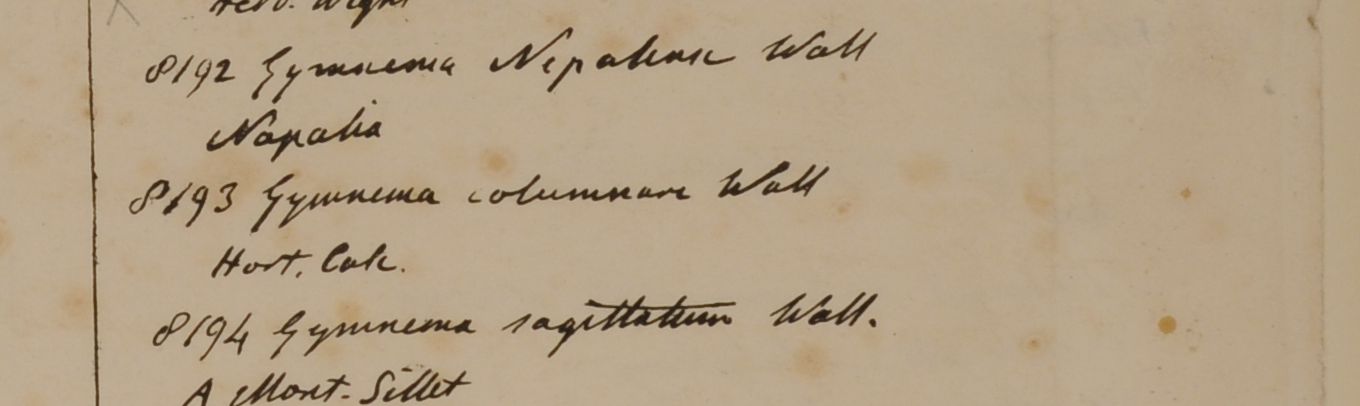 Herb. Wight
8192 Gymnema Nepalense Wall
Napalia
8193 Gymnema columnare Wall
Hort. Calc.
8194 Gymnema sagittatum Wall.
A Mont. Sillet